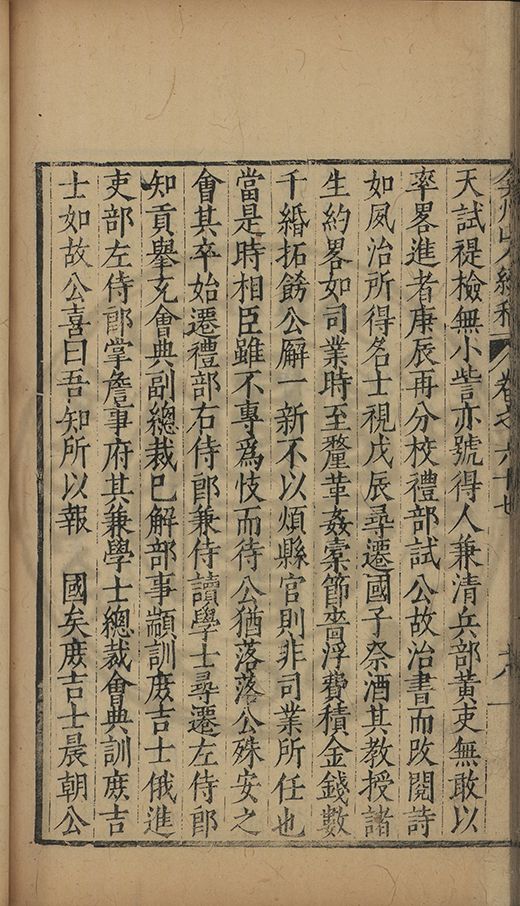 弇州山人續稿 卷之六十七 六
天試禔檢無小訾亦號得人兼清兵部黃吏無敢以
卒畧進者庚辰再分校禮部試公故治書而改閱詩
如夙治所得名士視戊辰尋遷國子祭酒其教授諸
生約畧如司業時至釐革姦橐節嗇浮費積金錢數
千緡拓餝公廨一新不以煩縣官則非司業所任也
當是時相臣雖不專為忮而待公猶落落公殊安之
會其卒始遷禮部右侍郎兼侍讀學士尋遷左侍郎
知貢舉充會典副總裁已解部事顓訓庻吉士俄進
吏部左侍郎掌詹事府其兼學士總裁會典訓庻吉
士如故公喜曰吾知所以報　國矣庻吉士晨朝公